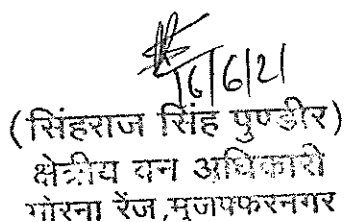 16/6/21
(सिंहराज सिंह पुण्डीर)
क्षेत्रीय वन अधिकारी
रेंज,मुजफ्फरनगर